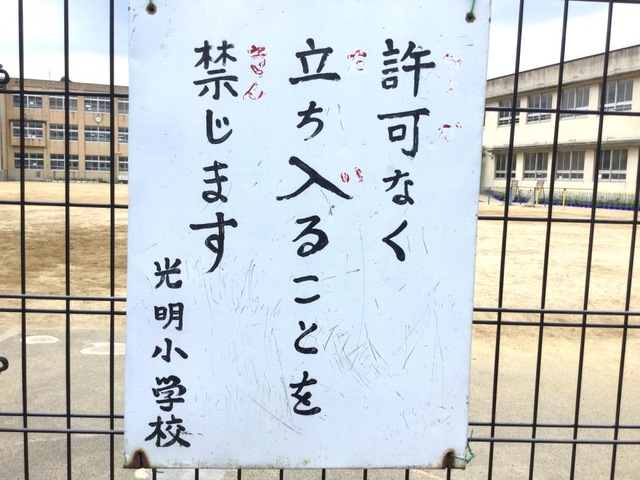 許可なく
立ち入ることを
禁じます
きん
光明小学校